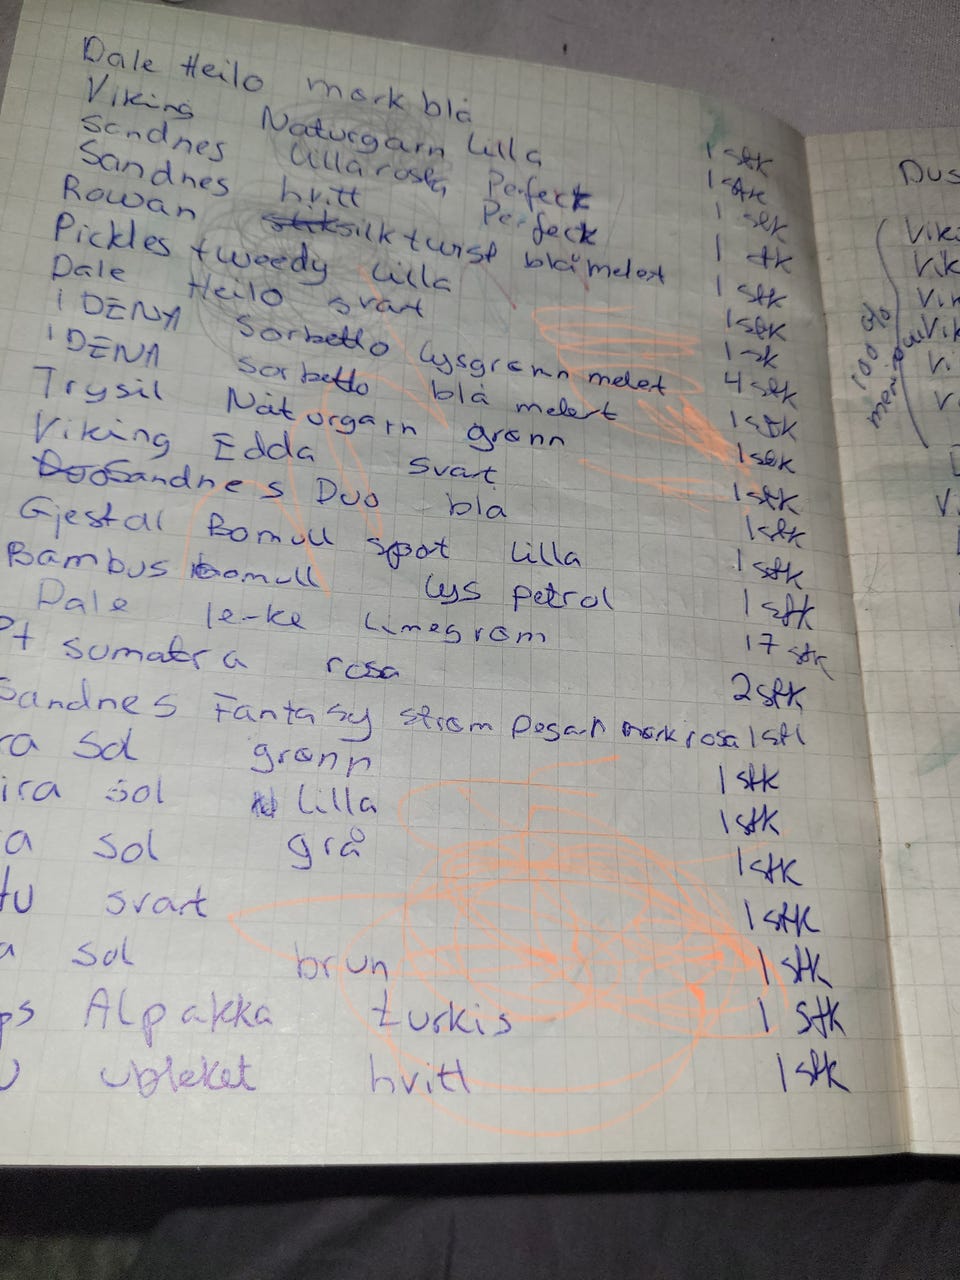 Dale Heilo mørk blå 1 stk
Viking Naturgarn Lilla 1 stk
Sandnes Lillarosa Perfect 1 stk
Sandnes hvitt Perfect 1 stk
Rowan silktwist blåmelert 1 stk
Pickles tweedy Lilla 1 stk
Dale Heilo svart 1 stk
iDENA Sorbetto Lysgrønn melert 4 stk
iDENA Sorbetto blå melert 1 stk
Trysil Naturgarn grønn 1 stk
Viking Edda svart 1 stk
Sandnes Duo blå 1 stk
Gjestal Bomull spot Lilla 1 stk
Bambus bomull Lys petrol 1 stk
Dale le-ke Limegrøm 17 stk
Pt sumatra rosa 2 stk
Sandnes Fantasy strømpegarn mørk rosa 1 stk
ra sol grønn 1 stk
ira sol Lilla 1 stk
a sol grå 1 stk
tu svart 1 stk
a sol brun 1 stk
ps Alpakka turkis 1 stk
ubleket hvitt 1 stk
Dus
Viki
Vik
Vin
Vik
Vi
100%